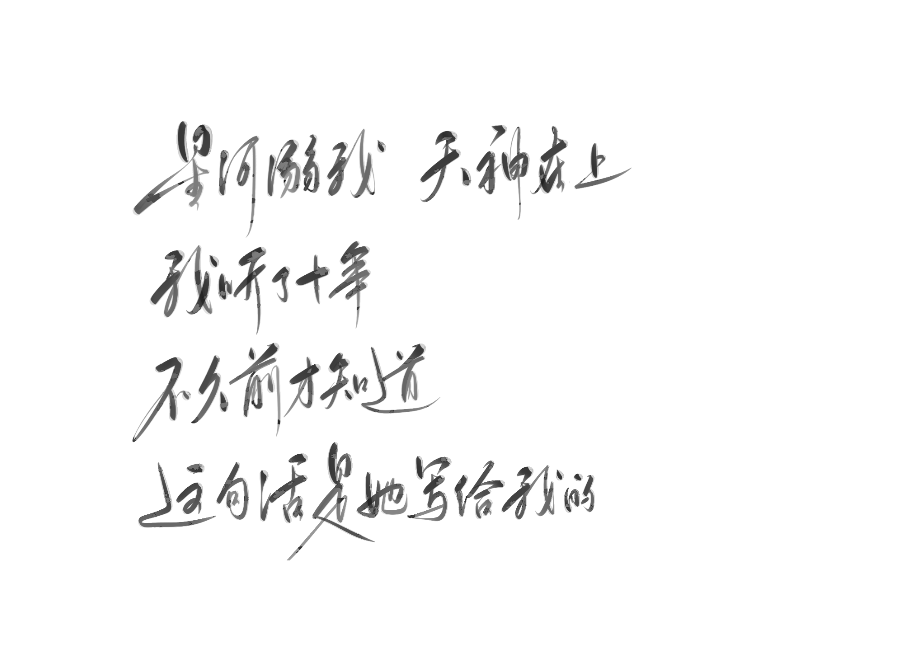 星河溺我 天神在上
我听了十年
不久前才知道
这句话是她写给我的